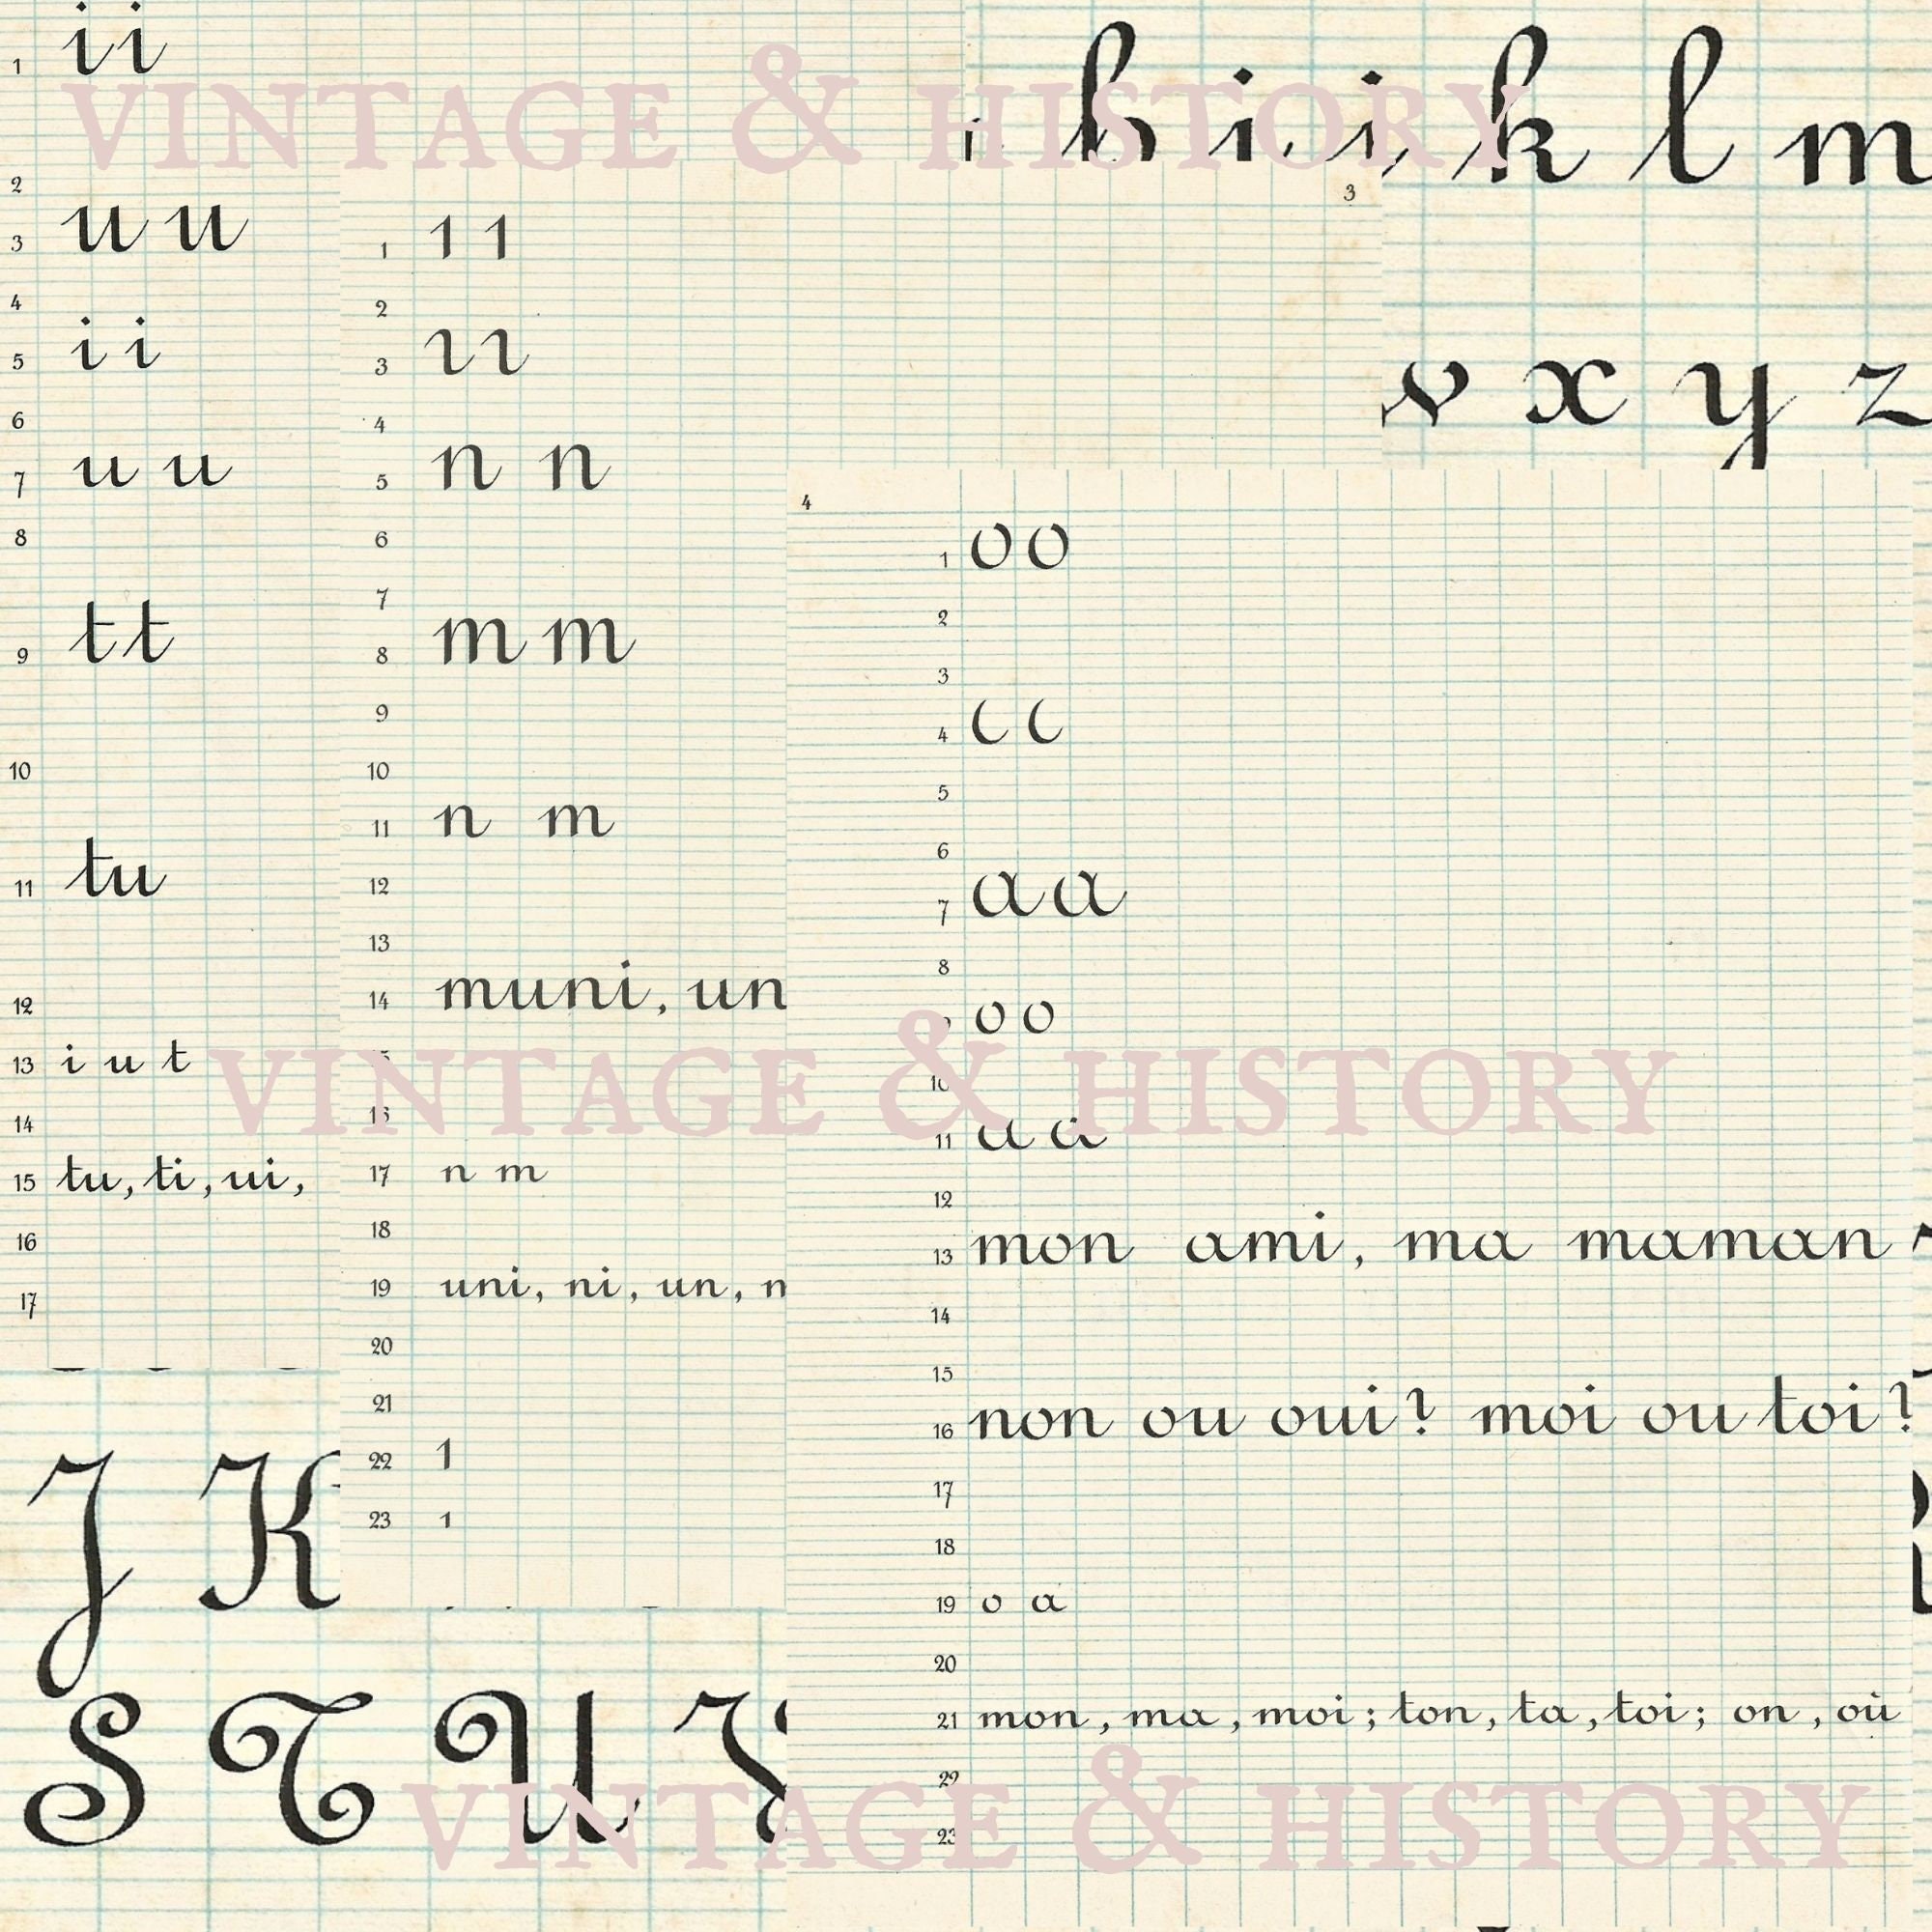 1 ii
2
3 u u
4
5 i i
6
7 u u
8
9 tt
10
11 tu
12
13 i u t
14
15 tu, ti, ui,
16
17
h i j k l m
x y z
VINTAGE & HISTORY
3
1 1 1
2
3 ıı
4
5 n n
6
7
8 m m
9
10
11 n m
12
13
14 muni, un
17 n m
18
19 uni, ni, un,
20
21
22 1
23 1
4
1 oo
2
3
4 cc
5
6
7 aa
8
o o
10
11 a a
12
13 mon ami, ma maman
14
15
16 non ou oui? moi ou toi?
17
18
19 o a
20
21 mon, ma, moi; ton, ta, toi; on, où
22
23
VINTAGE & HISTORY
J K
S T U V
VINTAGE & HISTORY